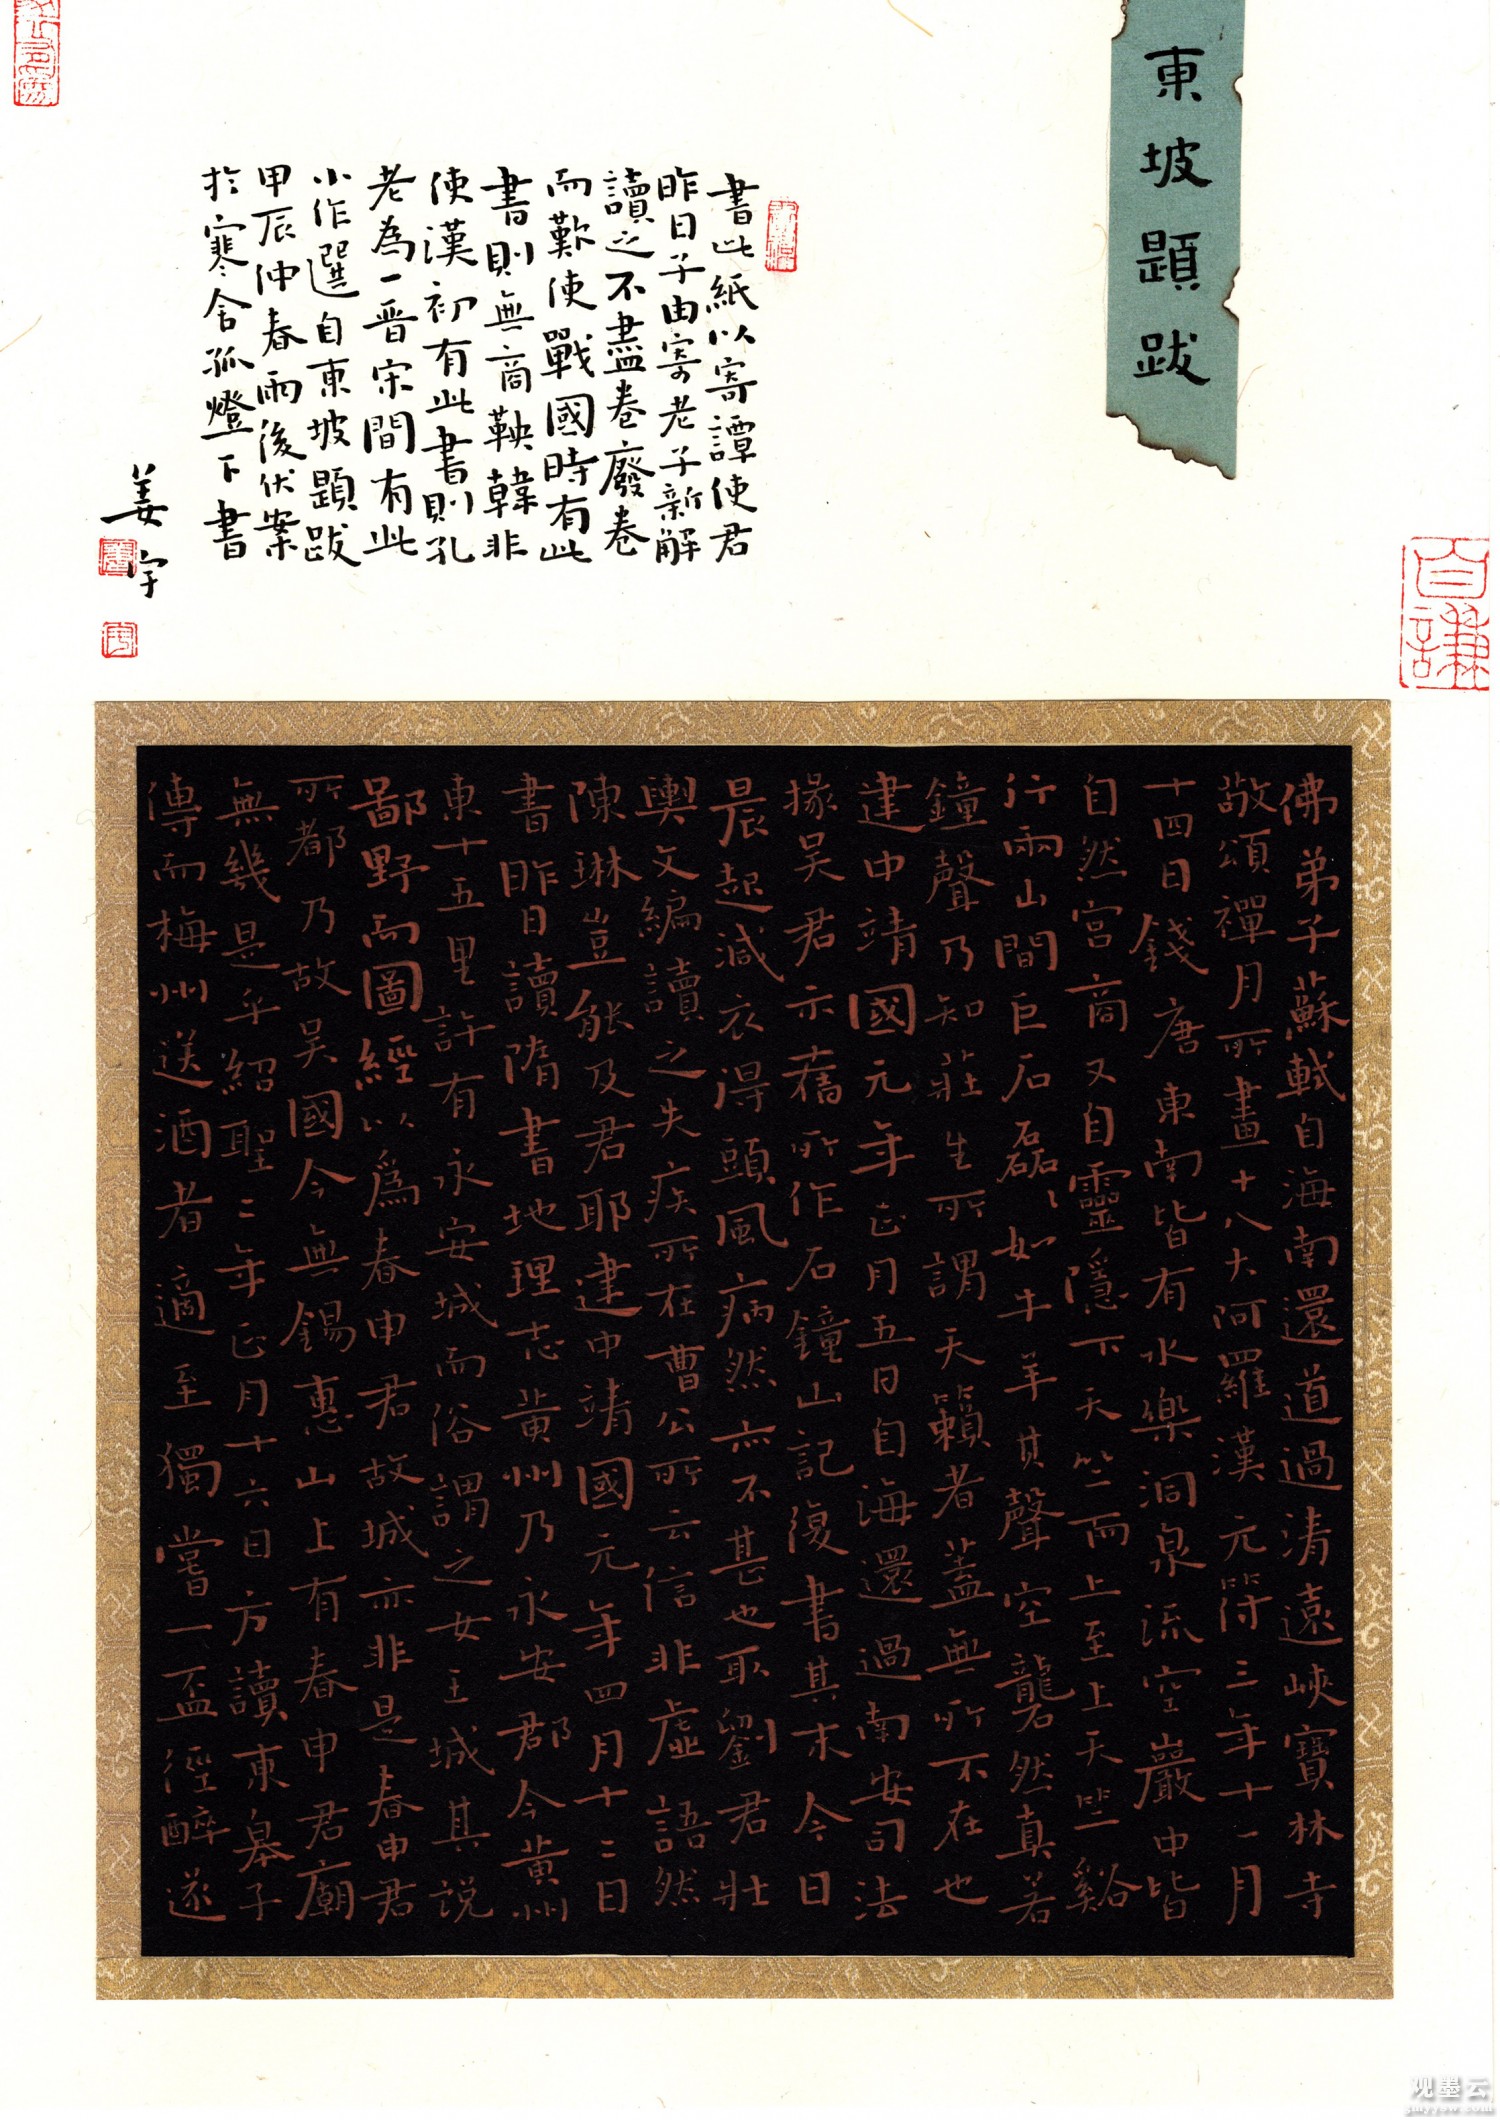 東坡題跋
書此紙以寄譚使君
昨日子由寄老子新解
讀之不盡卷廢卷
而歎使戰國時有此
書則無商鞅韓非
使漢初有此書則孔
老為一晋宋間有此
小作選自東坡題跋
甲辰仲春雨後伏案
於寒舍孤燈下書
姜宇
自謙
佛弟子蘇軾自海南還道過清遠峽寶林寺
敬頌禪月所畫十八大阿羅漢元符三年十一月
十四日錢唐東南皆有水樂洞泉流空巖中皆
自然宮商又自靈隱下天竺而上至上天竺谿
行兩山間巨石磊磊如牛羊其聲空礲然真若
鐘聲乃知莊生所謂天籟者蓋無所不在也
建中靖國元年正月五日自海還過南安司法
掾吴君示舊所作石鐘山記復書其末今日
晨起減衣得頭風病然亦不甚也取劉君壯
輿文編讀之失疾所在曹公所云信非虛語然
陳琳豈能及君耶建中靖國元年四月十二日
書昨日讀隋書地理志黄州乃永安郡今黄州
東十五里許有永安城而俗謂之女王城其説
鄙野而圖經以爲春申君故城亦非是春申君
所都乃故吴國今無錫惠山上有春申君廟
無幾是乎紹聖二年正月十六日方讀東皋子
傳而梅州送酒者適至獨嘗一盃徑醉遂
观墨云
gmyyow.com